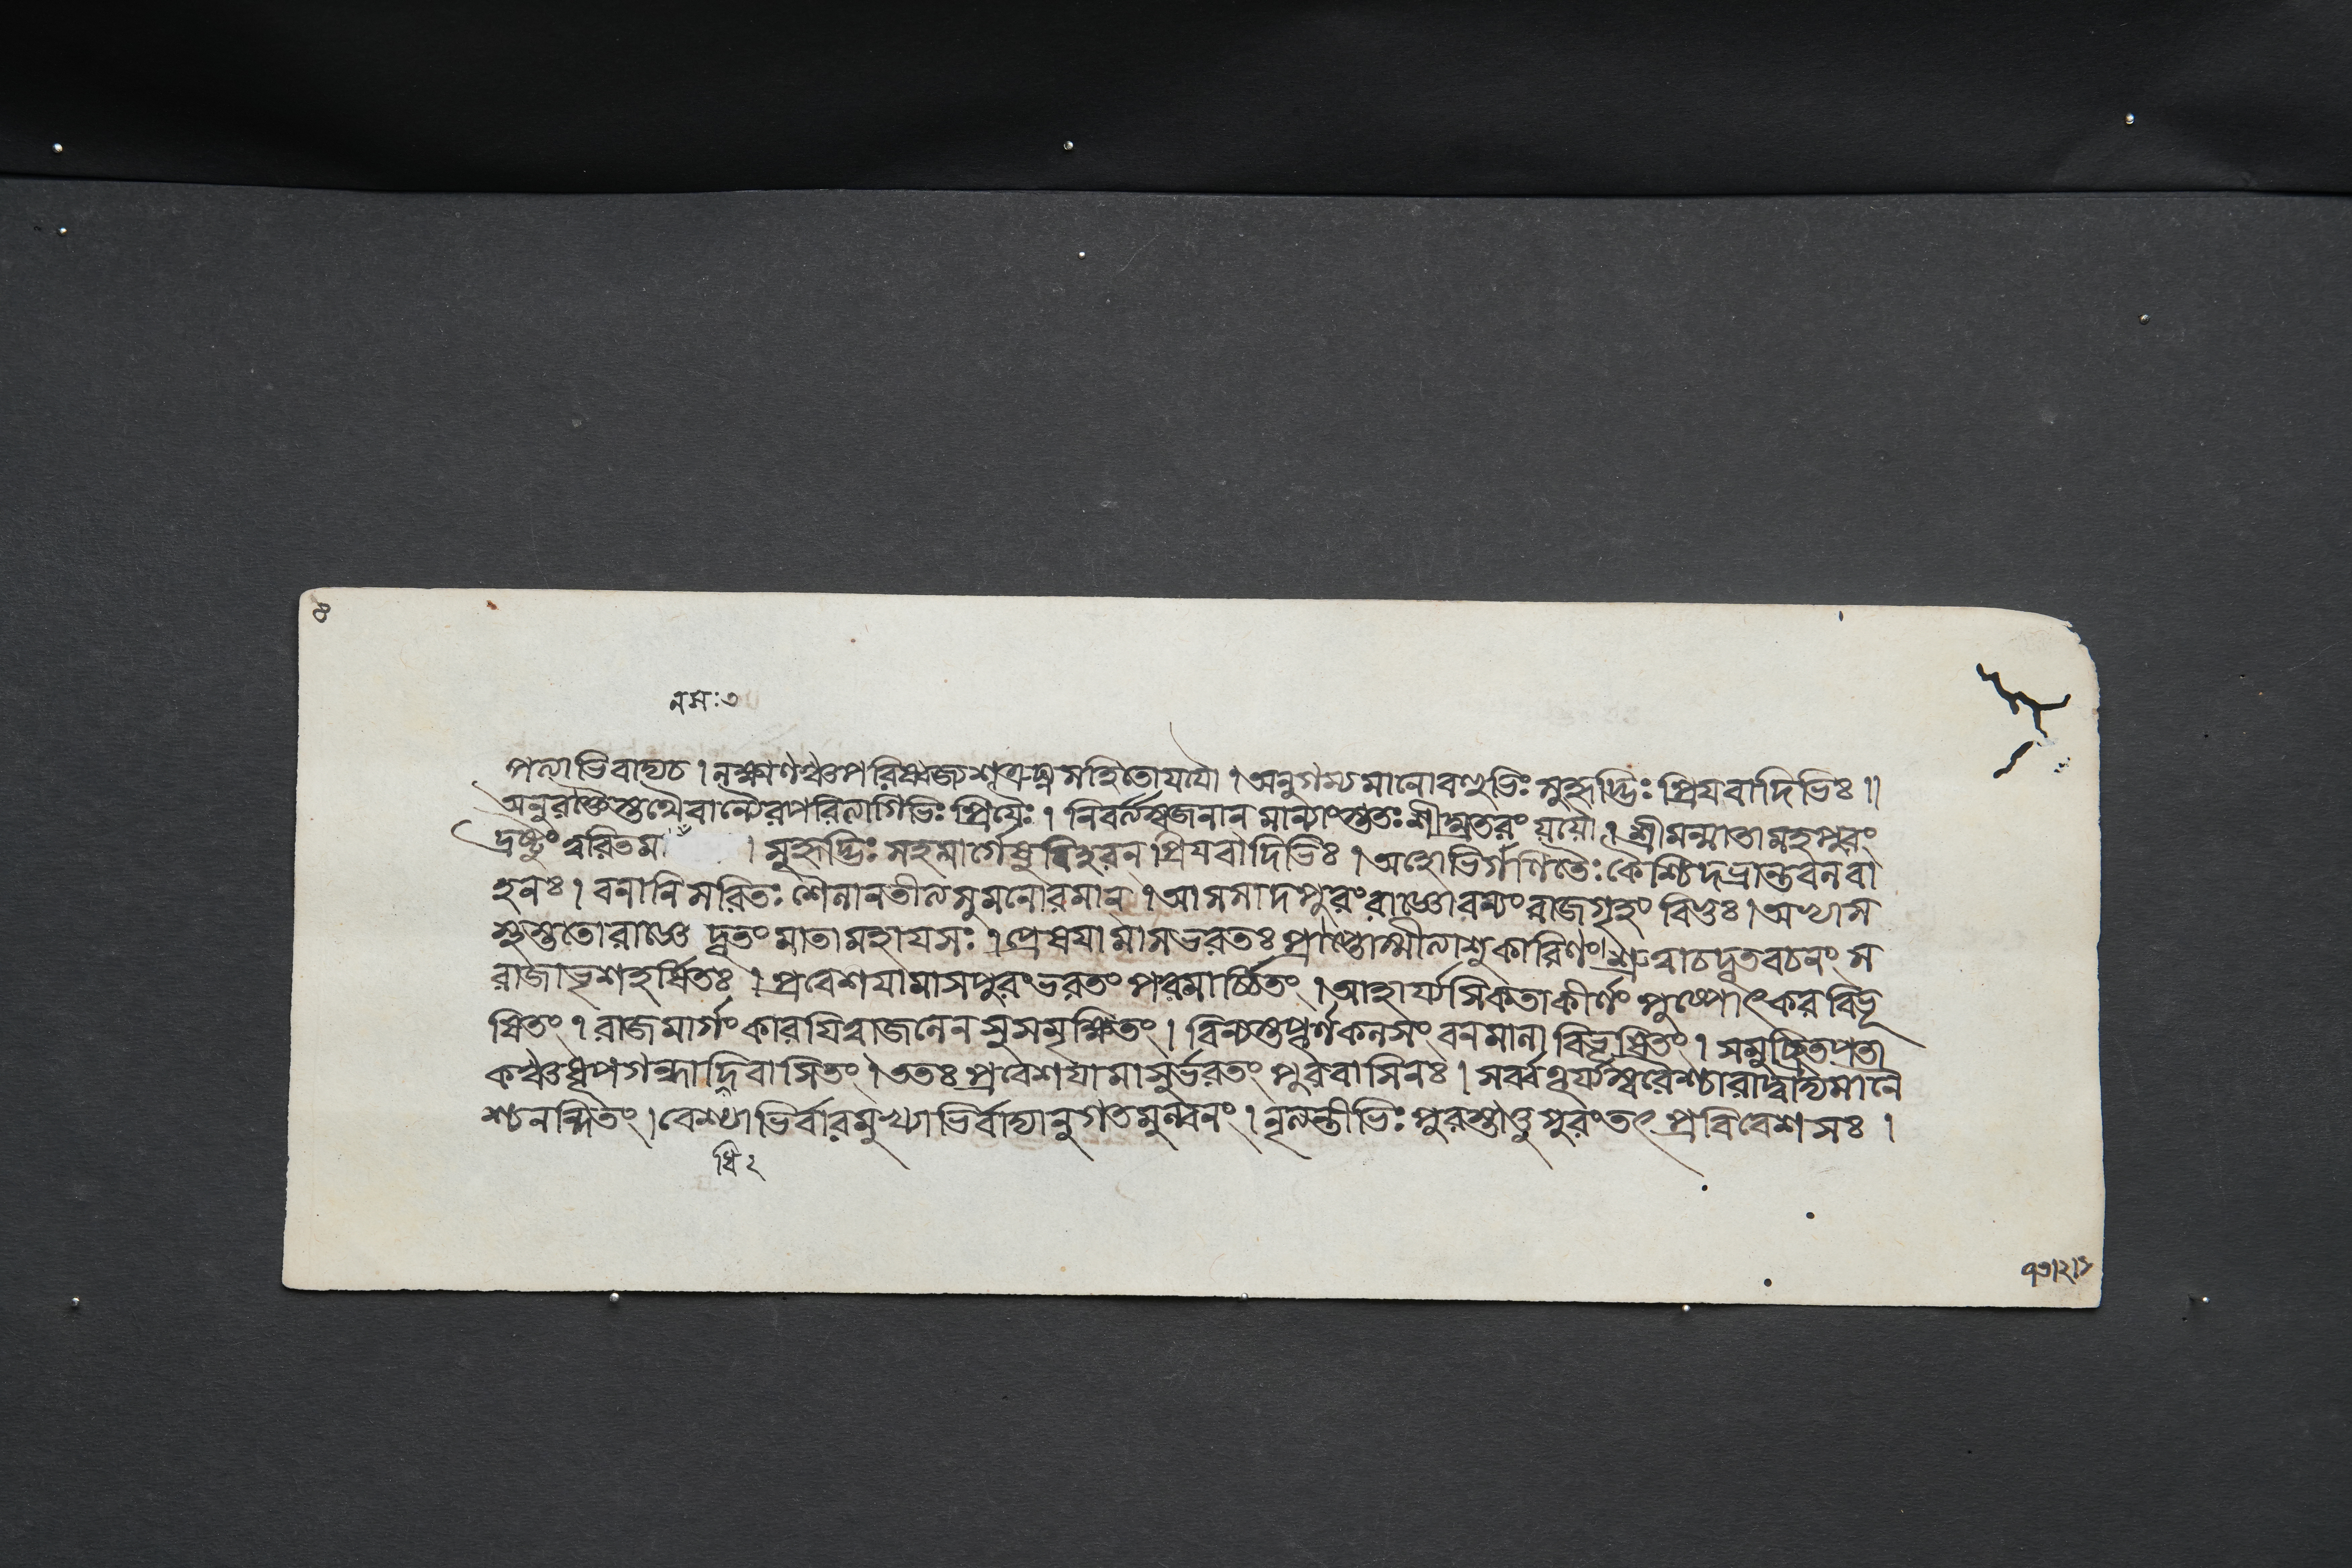 ৪
নমঃ ৩
পত্যাভিবাদ্য চ । লক্ষ্মণঞ্চ পরিষ্বজ্য শত্রুঘ্নসহিতো যযৌ । অনুগম্যমানো বন্ধুভিঃ সুহৃদ্ভিঃ প্রিয়বাদিভিঃ ॥
অনুরক্তৈস্তথৈবান্যৈরপরিত্যাগিভিঃ প্রিয়ৈঃ । নিবর্ত্ত্য স্বজনান মান্যাংস্ততঃ শীঘ্রতরং য়য়ৌ । শ্রীমন্মাতামহপুরং
দ্রষ্টুং ত্বরিতম । সুহৃদ্ভিঃ সহ মার্গেষু বিহরন্ প্রিয়বাদিভিঃ । অহোভির্গণিতৈঃ কৈশ্চিদভ্রান্তবলবা
হনঃ । বনানি সরিতঃ শৈলানতীত্য সুমনোরমান্ । আসসাদ পুরং রাজ্ঞো রম্যং রাজগৃহং বিভুঃ । অথ স
স্তুততো রাজ্ঞে দূতং মাতামহায় সঃ । প্রেষয়ামাস ভরতঃ প্রাপ্তোস্মীত্যাশুকারিণং । শ্রুত্বা চ দূতবচনং স
রাজা ভৃশহর্ষিতঃ । প্রবেশয়ামাস পুরং ভরতং পরমার্চ্চিতং । আহার্য্য সিকতাকীর্ণং পুষ্পোৎকরবিভূ
ষিতং । রাজমার্গং কারয়িত্বা জনেন সুসমুক্ষিতং । বিন্যস্তপূর্ণকলসং বনমালাবিভূষিতং । সমুচ্ছ্রিতপতা
কঞ্চ ধূপগন্ধাদিবাসিতং । ততঃ প্রবেশয়ামাসুর্ভরতং পুরবাসিনঃ । সর্ব্বতূর্য্যস্বরৈশ্চারাদ্বাদ্যমানৈ
শ্চ নন্দিতং । বেশ্যাভির্বারমুখ্যাভির্বাদ্যানুগতমুল্বনং । নৃত্যন্তীভিঃ পুরস্তাত্তু পুরং তৎ প্রবিবেশ সঃ ।
ধি ২